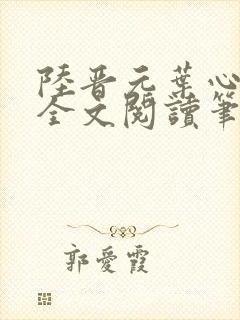 陸晉元葉心
全文閱讀筆
郭愛霞